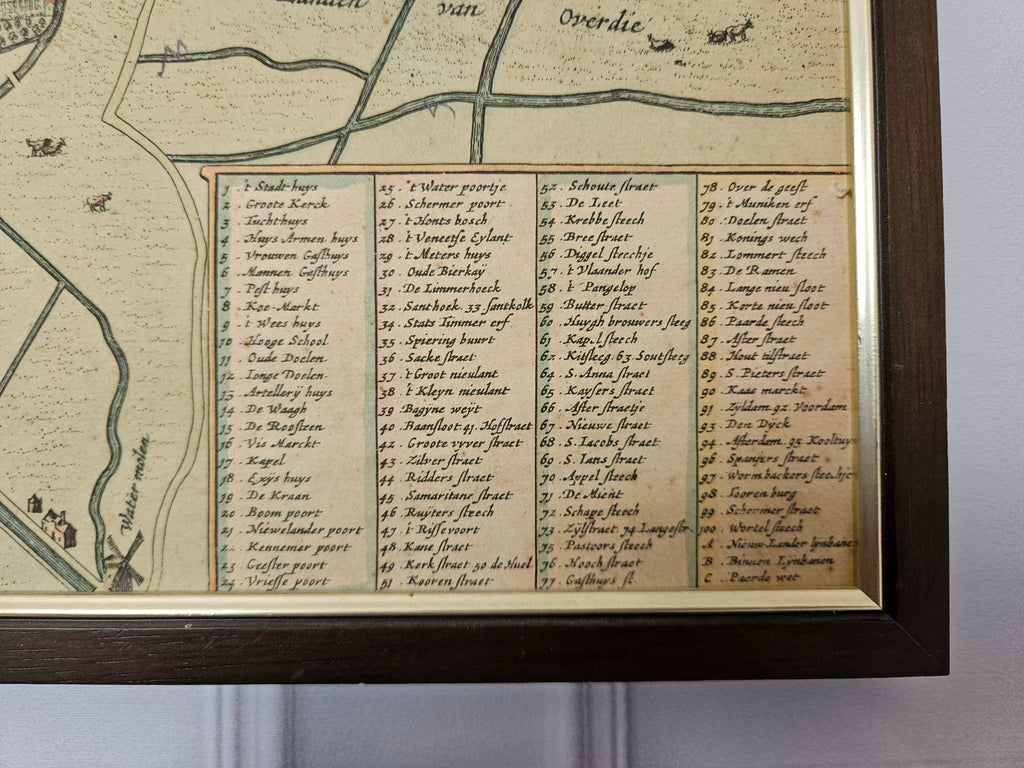 Landen
van
Overdie
Water molen
1 . 't Stadt huys
2 . Groote Kerck
3 . Tuchthuys
4 . Huys Armen huys
5 . Vrouwen Gasthuys
6 . Mannen Gasthuys
7 . Pest huys
8 . Koe-Markt
9 . 't Wees huys
10 . Hooge School
11 . Oude Doelen
12 . Ionge Doelen
13 . Artellerij huys
14 . De Waagh
15 . De Roosteen
16 . Vis Marckt
17 . Kapel
18 . Exys huys
19 . De Kraan
20 . Boom poort
21 . Niewelander poort
22 . Kennemer poort
23 . Geester poort
24 . Vriesse poort
25 . 't Water poortje
26 . Schermer poort
27 . 't Honts bosch
28 . 't Veneetse Eylant
29 . 't Meters huys
30 . Oude Bierkaÿ
31 . De Limmerhoeck
32 . Santhoek . 33 . Santkolk
34 . Stats Timmer erf
35 . Spiering buurt
36 . Sacke straet
37 . 't Groot nieulant
38 . 't Kleyn nieulant
39 . Bagÿne weÿt
40 . Baansloot . 41 . Hofstraet
42 . Groote vyver straet
43 . Zilver straet
44 . Ridders straet
45 . Samaritane straet
46 . Ruÿters steech
47 . 't Rissevoort
48 . Kane straet
49 . Kerk straet 50 de Huel
51 . Kooren straet
52 . Schoute straet
53 . De Leet
54 . Krebbe steech
55 . Bree straet
56 . Diggel steechje
57 . 't Vlaander hof
58 . 't Pangelop
59 . Butter straet
60 . Huygh brouwers steeg
61 . Kapel steech
62 . Kitsteeg . 63 . Soutsteeg
64 . S. Anna straet
65 . Kaysers straet
66 . After straetje
67 . Nieuwe straet
68 . S. Iacobs straet
69 . S. Ians straet
70 . Appel steech
71 . De Mient
72 . Schape steech
73 . Zÿlstraet . 74 . Langestr.
75 . Pastoors steech
76 . Hooch straet
77 . Gasthuys st.
78 . Over de geest
79 . 't Muniken erf
80 . Doelen straet
81 . Konings wech
82 . Lommert steech
83 . De Ramen
84 . Lange nieu sloot
85 . Korte nieu sloot
86 . Paarde steech
87 . After straet
88 . Hout tilstraet
89 . S. Pieters straet
90 . Kaas marckt
91 . Zyldam . 92 . Voordam
93 . Den Dÿck
94 . Afterdam . 95 . Kooltuy
96 . Spanjers straet
97 . Wormbackers steechje
98 . Tooren burg
99 . Schermer straet
100 . Wortel steech
A . Nieuw Lander lynbanen
B . Binnen Lÿnbanen
C . Paerde wet